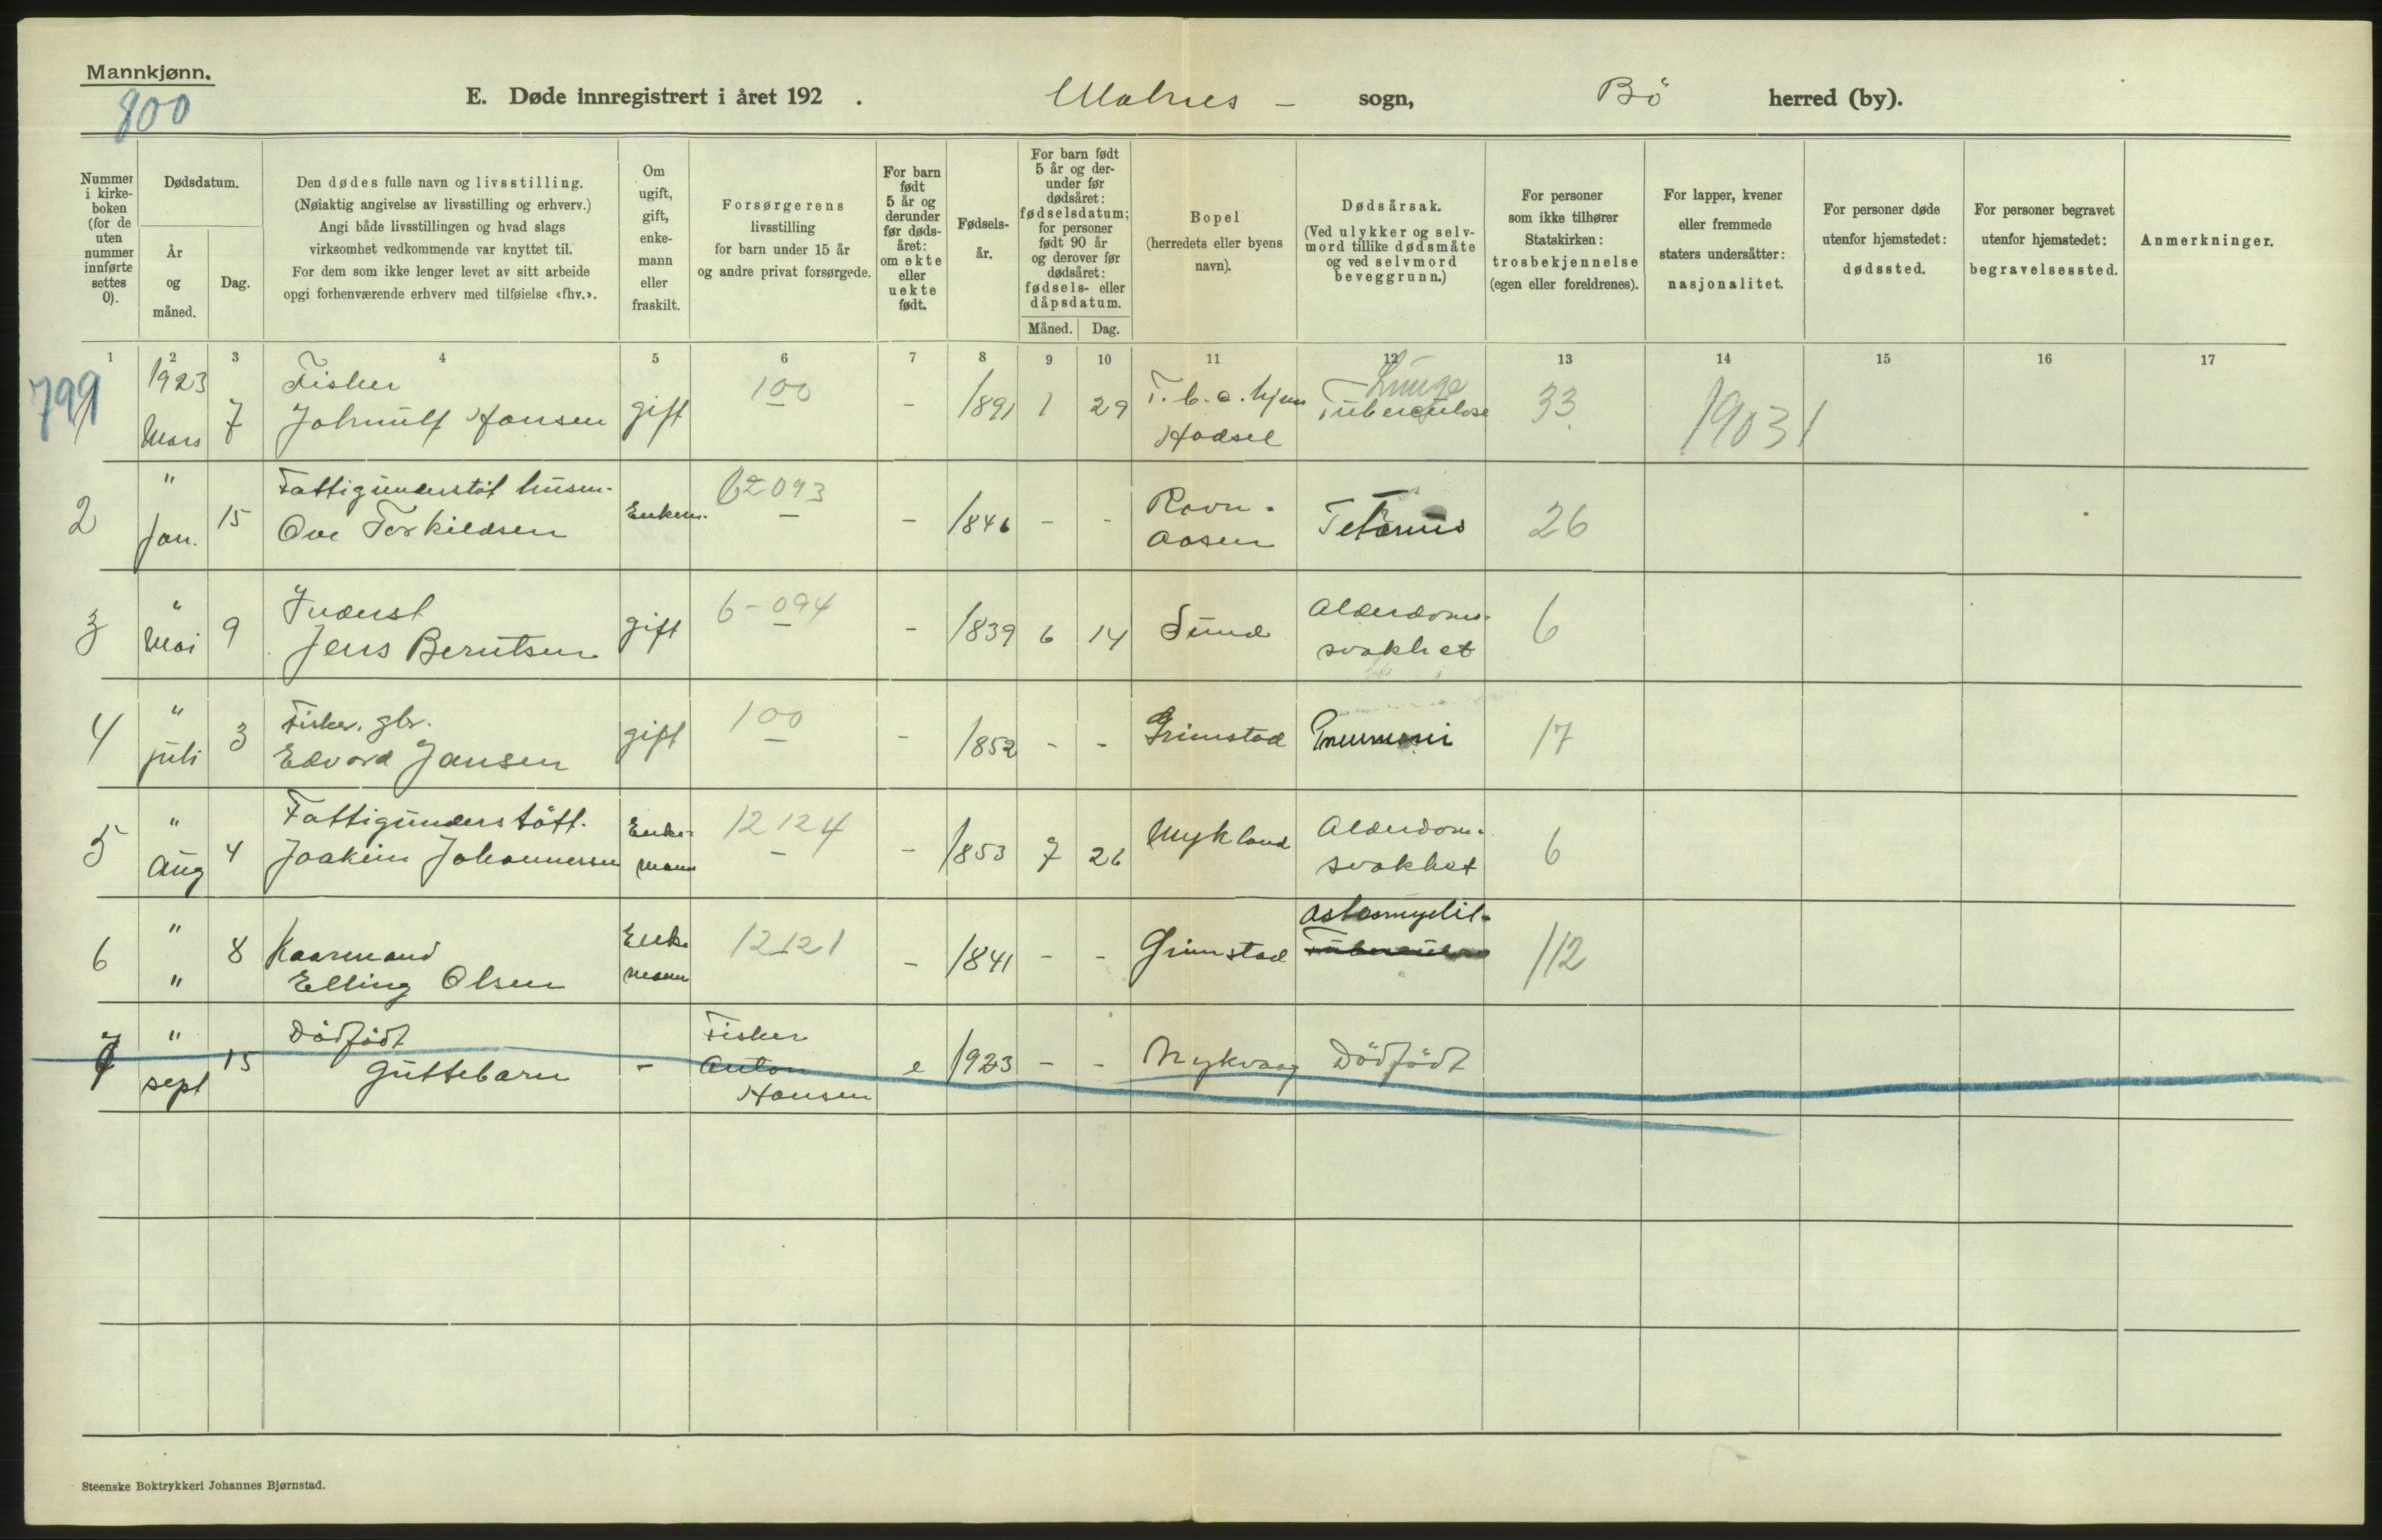 Mannkjønn.
800
E. Døde innregistrert i året 192 .
Malnes - sogn,
Bö herred (by).
Nummer
i kirke-
boken
(for de
uten
nummer
innførte
settes
0).
Dødsdatum.
År
og
måned.
Dag.
Den dødes fulle navn og livsstilling.
(Nøiaktig angivelse av livsstilling og erhverv.)
Angi både livsstillingen og hvad slags
virksomhet vedkommende var knyttet til.
For dem som ikke lenger levet av sitt arbeide
opgi forhenværende erhverv med tilføielse «fhv.».
Om
ugift,
gift,
enke-
mann
eller
fraskilt.
Forsørgerens
livsstilling
for barn under 15 år
og andre privat forsørgede.
For barn
født
5 år og
derunder
før døds-
året:
om ekte
eller
uekte
født.
Fødsels-
år.
For barn født
5 år og der-
under før
dødsåret:
fødselsdatum;
for personer
født 90 år
og derover før
dødsåret:
fødsels- eller
dåpsdatum.
Måned. Dag.
Bopel
(herredets eller byens
navn).
Dødsårsak.
(Ved ulykker og selv-
mord tillike dødsmåte
og ved selvmord
beveggrunn.)
For personer
som ikke tilhører
Statskirken:
trosbekjennelse
(egen eller foreldrenes).
For lapper, kvener
eller fremmede
staters undersåtter:
nasjonalitet.
For personer døde
utenfor hjemstedet:
dødssted.
For personer begravet
utenfor hjemstedet:
begravelsessted.
Anmerkninger.
1 2 3 4 5 6 7 8 9 10 11 12 13 14 15 16 17
799
1923
Mars 7
Fisker
Johnulf Hansen
gift
100
- 1891 1 29
T.b.c. hjem
Hadsel
Lunge
Tuberculose
33
19031
2
"
Jan. 15
Fattigunderstöt husm.
Ove Torkildsen
Enkem.
62093
-
- 1846 - -
Ravn-
aasen
Tetanus
26
3
"
Mai 9
Inderst
Jens Berntsen
gift
6-094
-
- 1839 6 14
Sund
Alderdoms-
svakhet
6
4
"
juli 3
Fisker. gbr.
Edvard Jansen
gift
100
-
- 1852 - -
Grimstad
Pneumoni
17
5
"
Aug 4
Fattigunderstött.
Joakim Johannessen
Enke-
mann
12124
-
- 1853 7 26
Mykland
Alderdom.
svakhet
6
6
"
" 8
Kaarmand
Elling Olsen
Enke
mann
12121
- 1841 - -
Grimstad
Osteomyelit-
Tuberculose
112
7
"
sept 15
Dödfödt
Guttebarn
-
Fisker
Anton
Hansen
e 1923 - -
Nykvaag
Dödfödt
Steenske Boktrykkeri Johannes Bjørnstad.